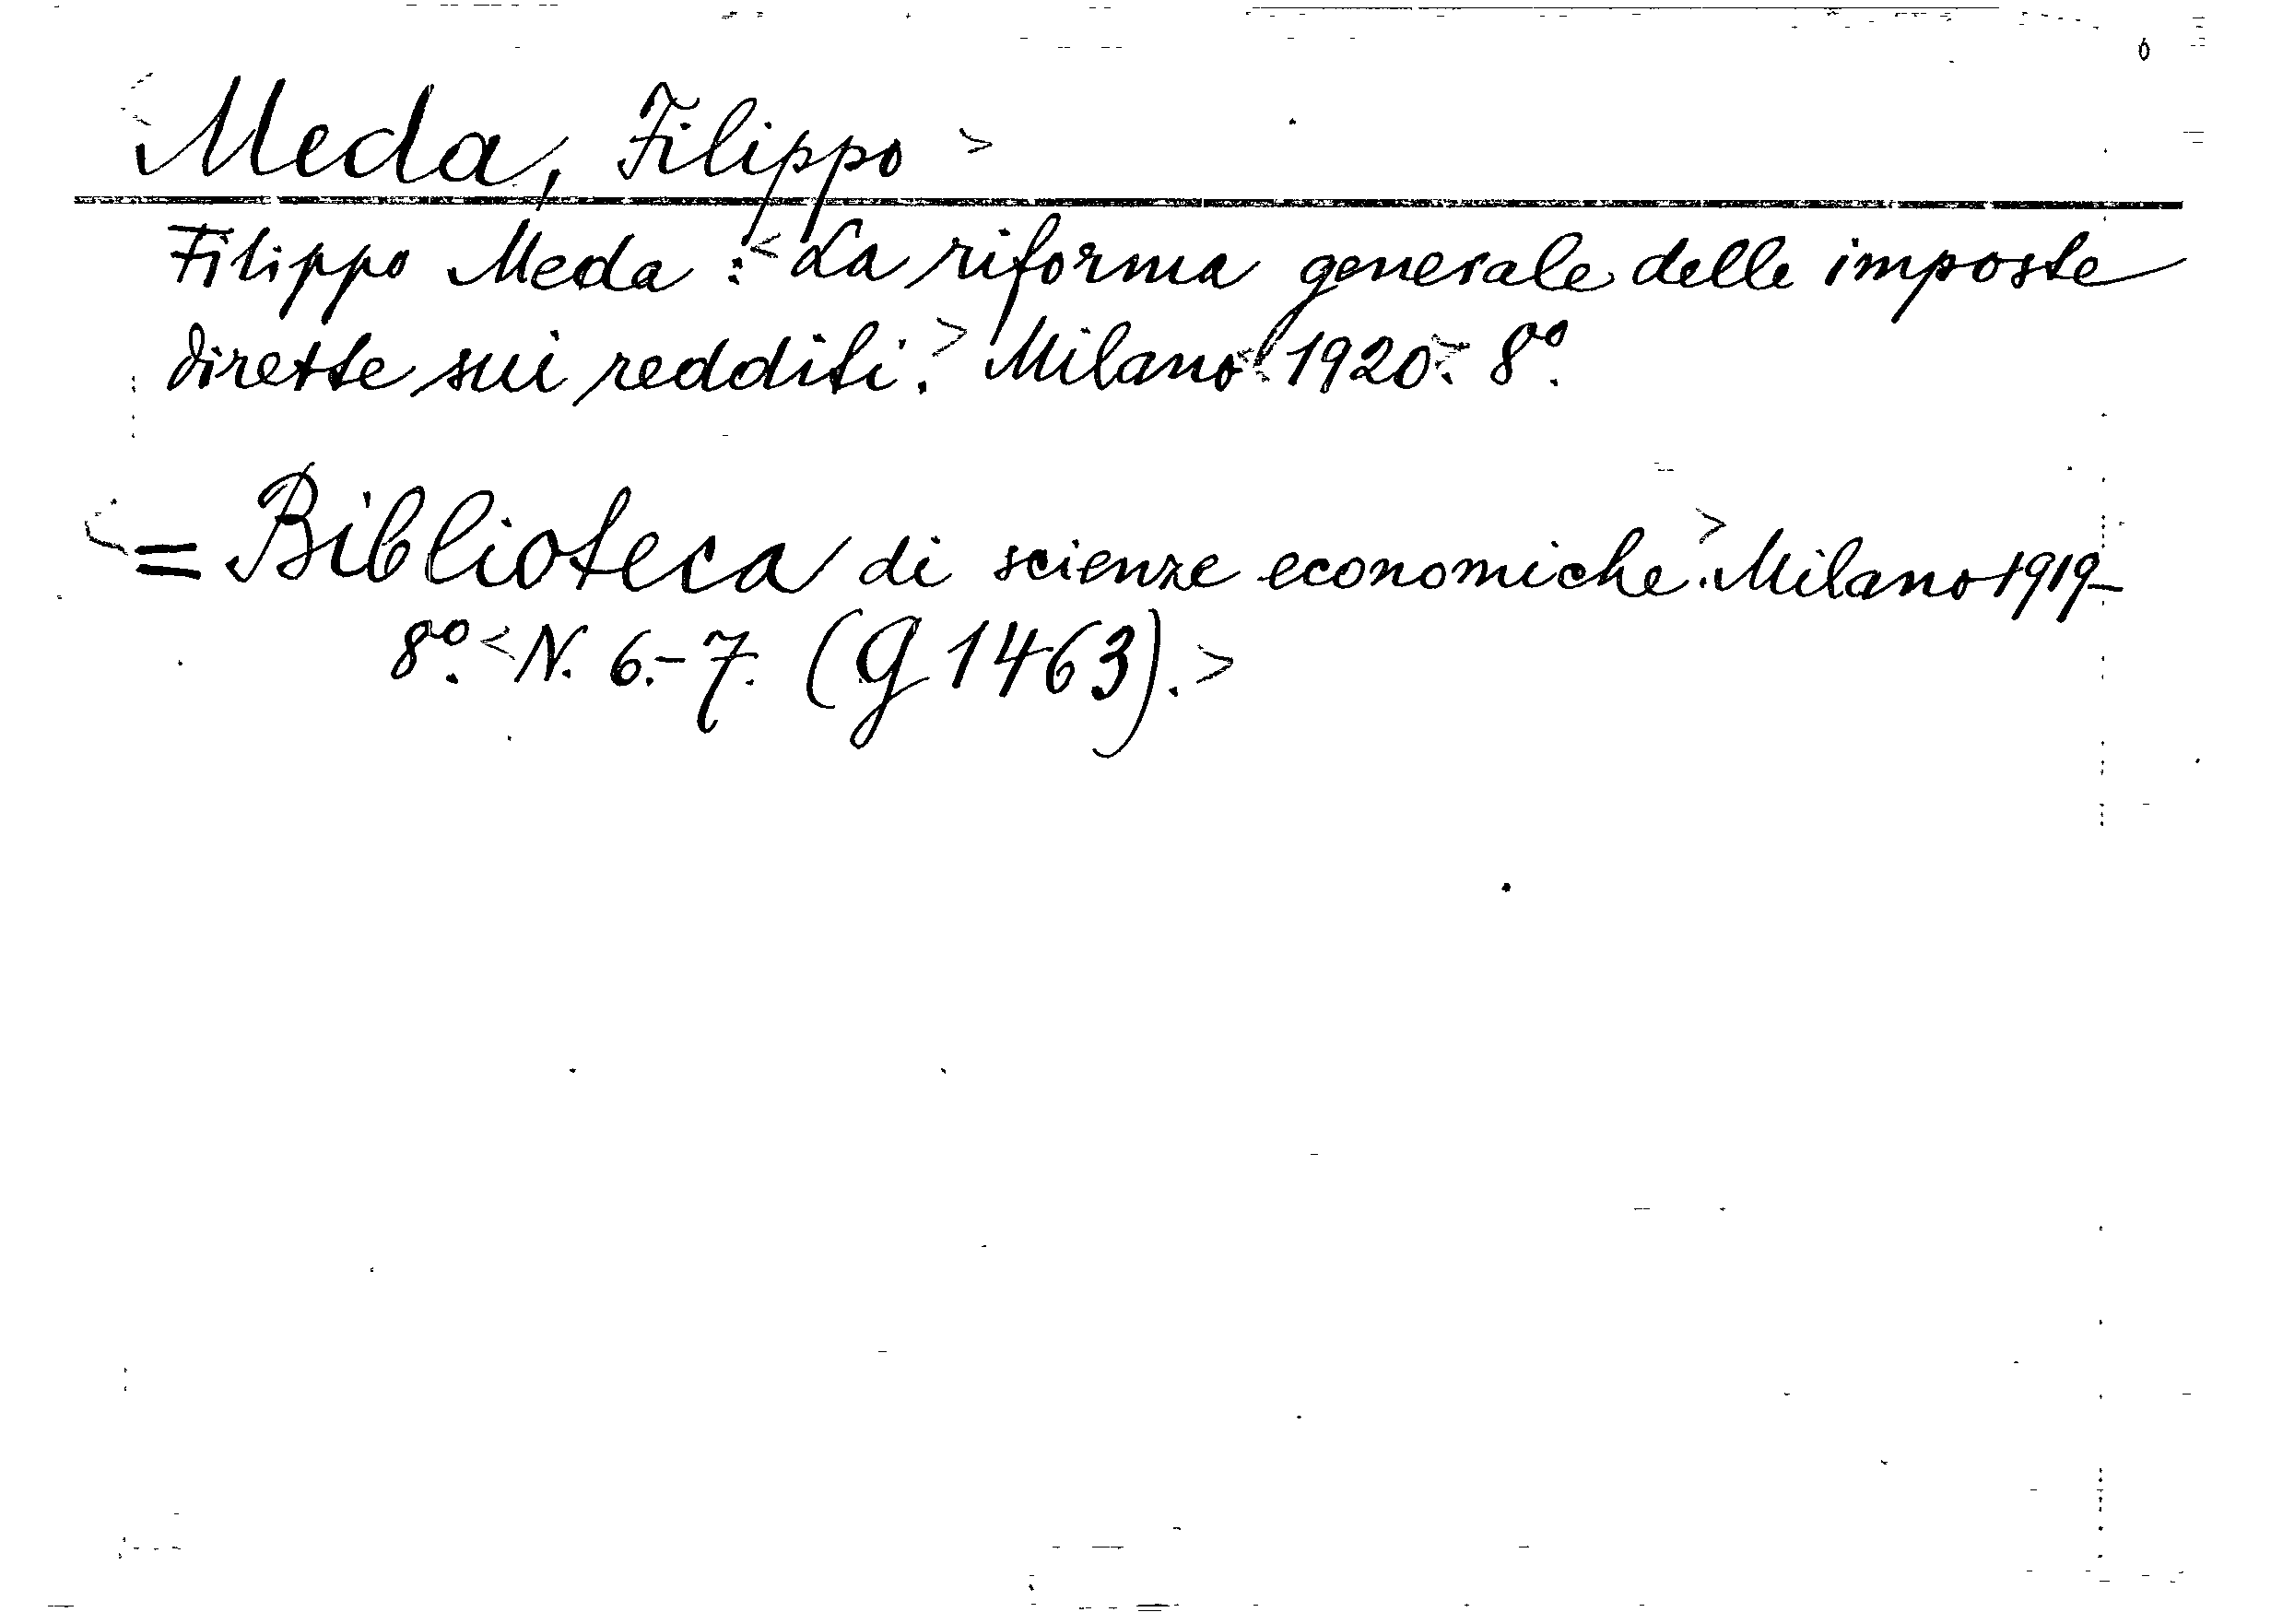 <Meda, Filippo>
Filippo Meda: <La riforma generale delle imposte
dirette sui redditi.> Milano <1920>. 8º.
<= Biblioteca di scienze economiche.> Milano 1919-
8º. <N. 6.-7. (G 1463).>